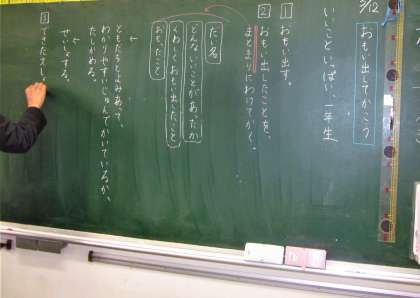 3/12
おもい出してかこう
いいこといっぱい、一年生
1 おもい出す。
2 おもい出したことを、
まとまりにわけてかく。
だい名
どんないいことがあったか
くわしくおもい出したこと
おもったこと
ともだちとよみあって、
わかりやすいじゅんでかいているか、
たしかめる。
↓
せいしょする。
3